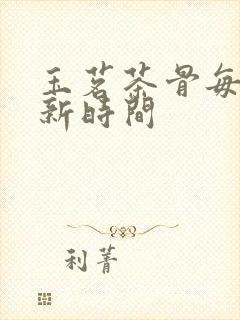 玉茗茶骨每
新時間
利菁